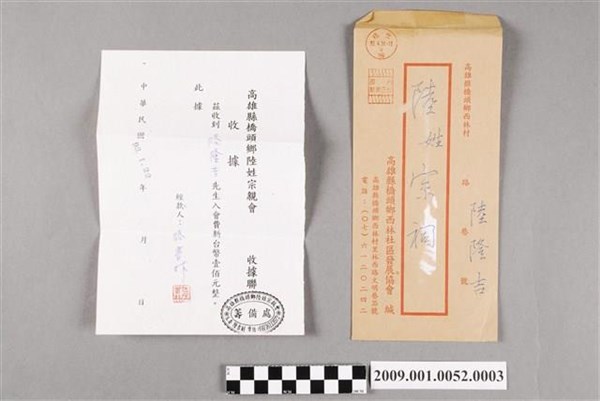 高雄縣橋頭鄉陸姓宗親會
收據
收據聯
茲收到陸隆吉先生入會費新台幣壹佰元整。
此據
經款人：
中華民國 年 月 日
籌備處
高雄縣橋頭鄉西林村
路 巷 號
陸隆吉
陸姓宗祠
高雄縣橋頭鄉西林社區發展協會 緘
電話：(〇七)六一二〇二四二
2009.001.0052.0003